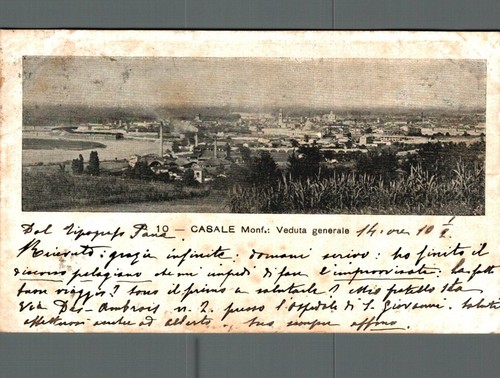 Dal Tipografo Pane 10 — CASALE Monf.: Veduta generale 14. ore 10 ½
Ricevuto: grazie infinite: domani scrivo: ho finito il
discorso pelagiano che mi impedì di fare l'improvvisata. Hai fatto
buon viaggio? sono il primo a salutarla? Mio fratello sta
via Des-Ambrois, n. 2. presso l'Ospedale di S. Giovanni. Saluti
affettuosi anche ad Alberto. suo sempre affmo.